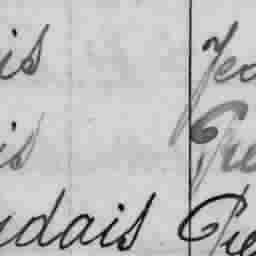 is Jea
is Pie
udais Pie